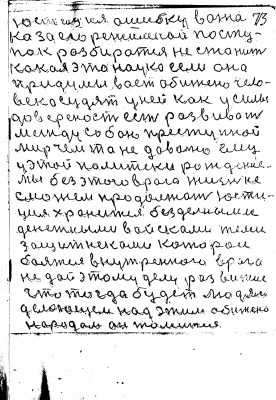 юстицыя ошибку вожа 73
ка зделорежимной посту-
пок розбиратся не станит
какая это наука если она
придумываєт обижено чело-
века судят у ней как у силы
доверености ест розвивают
между собою преступной
мир чем то не довольно ему
у этой политеки рождение-
мы без этого врага жизн не
сможем продолжат юсти-
ция хранится бездельными
денежными войсками теми
защитнеками которои
боятся внутренного врага
не дай этому делу розвитие
что тогда будет людям
делающем над этим обижено
народам он толится